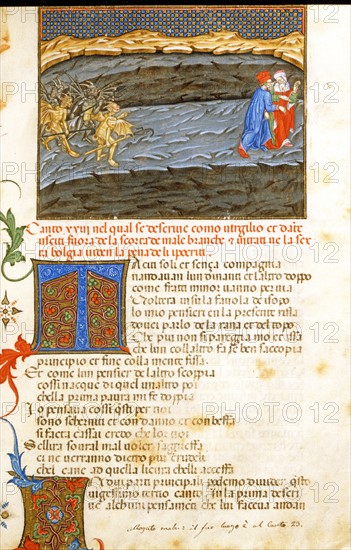 Canto xxiij nel qual se descrive como virgilio et dāte
usciti fuora de la scorta de male branche & intrati ne la sex
ta bolgia videro la pena de li ypocriti
Taciti soli et sença compagnia
nandavan lun dinanci et laltro dopo
come frati minor vanno per via
Volto era in su la favola de ysopo
lo mio pensieri en la presente rissa
dovei parlo de la rana et del topo
Che piu non si pareggia mo et issa
che lun collaltro fa se ben saccopia
principio et fine colla mente fissa
Et come lun pensier de laltro scopia
cosi nacque di quel un altro poi
che la prima paura mi fe doppia
Io pensava cosi qsti per noi
sono scherniti et con danno et con beffa
si facta cassai credo che lor noi
Se lira sovral mal voler sagueffa
ei ne verranno dietro piu crudeli
chel cane ad quella livera chelli acceffa
In duy parti principali potemo divider qsto
vigessimo tertio canto In la prima descri
ne alchuni pensamenti che lui faceva andan
il suo luogo è al Canto 23.
PHOTO12